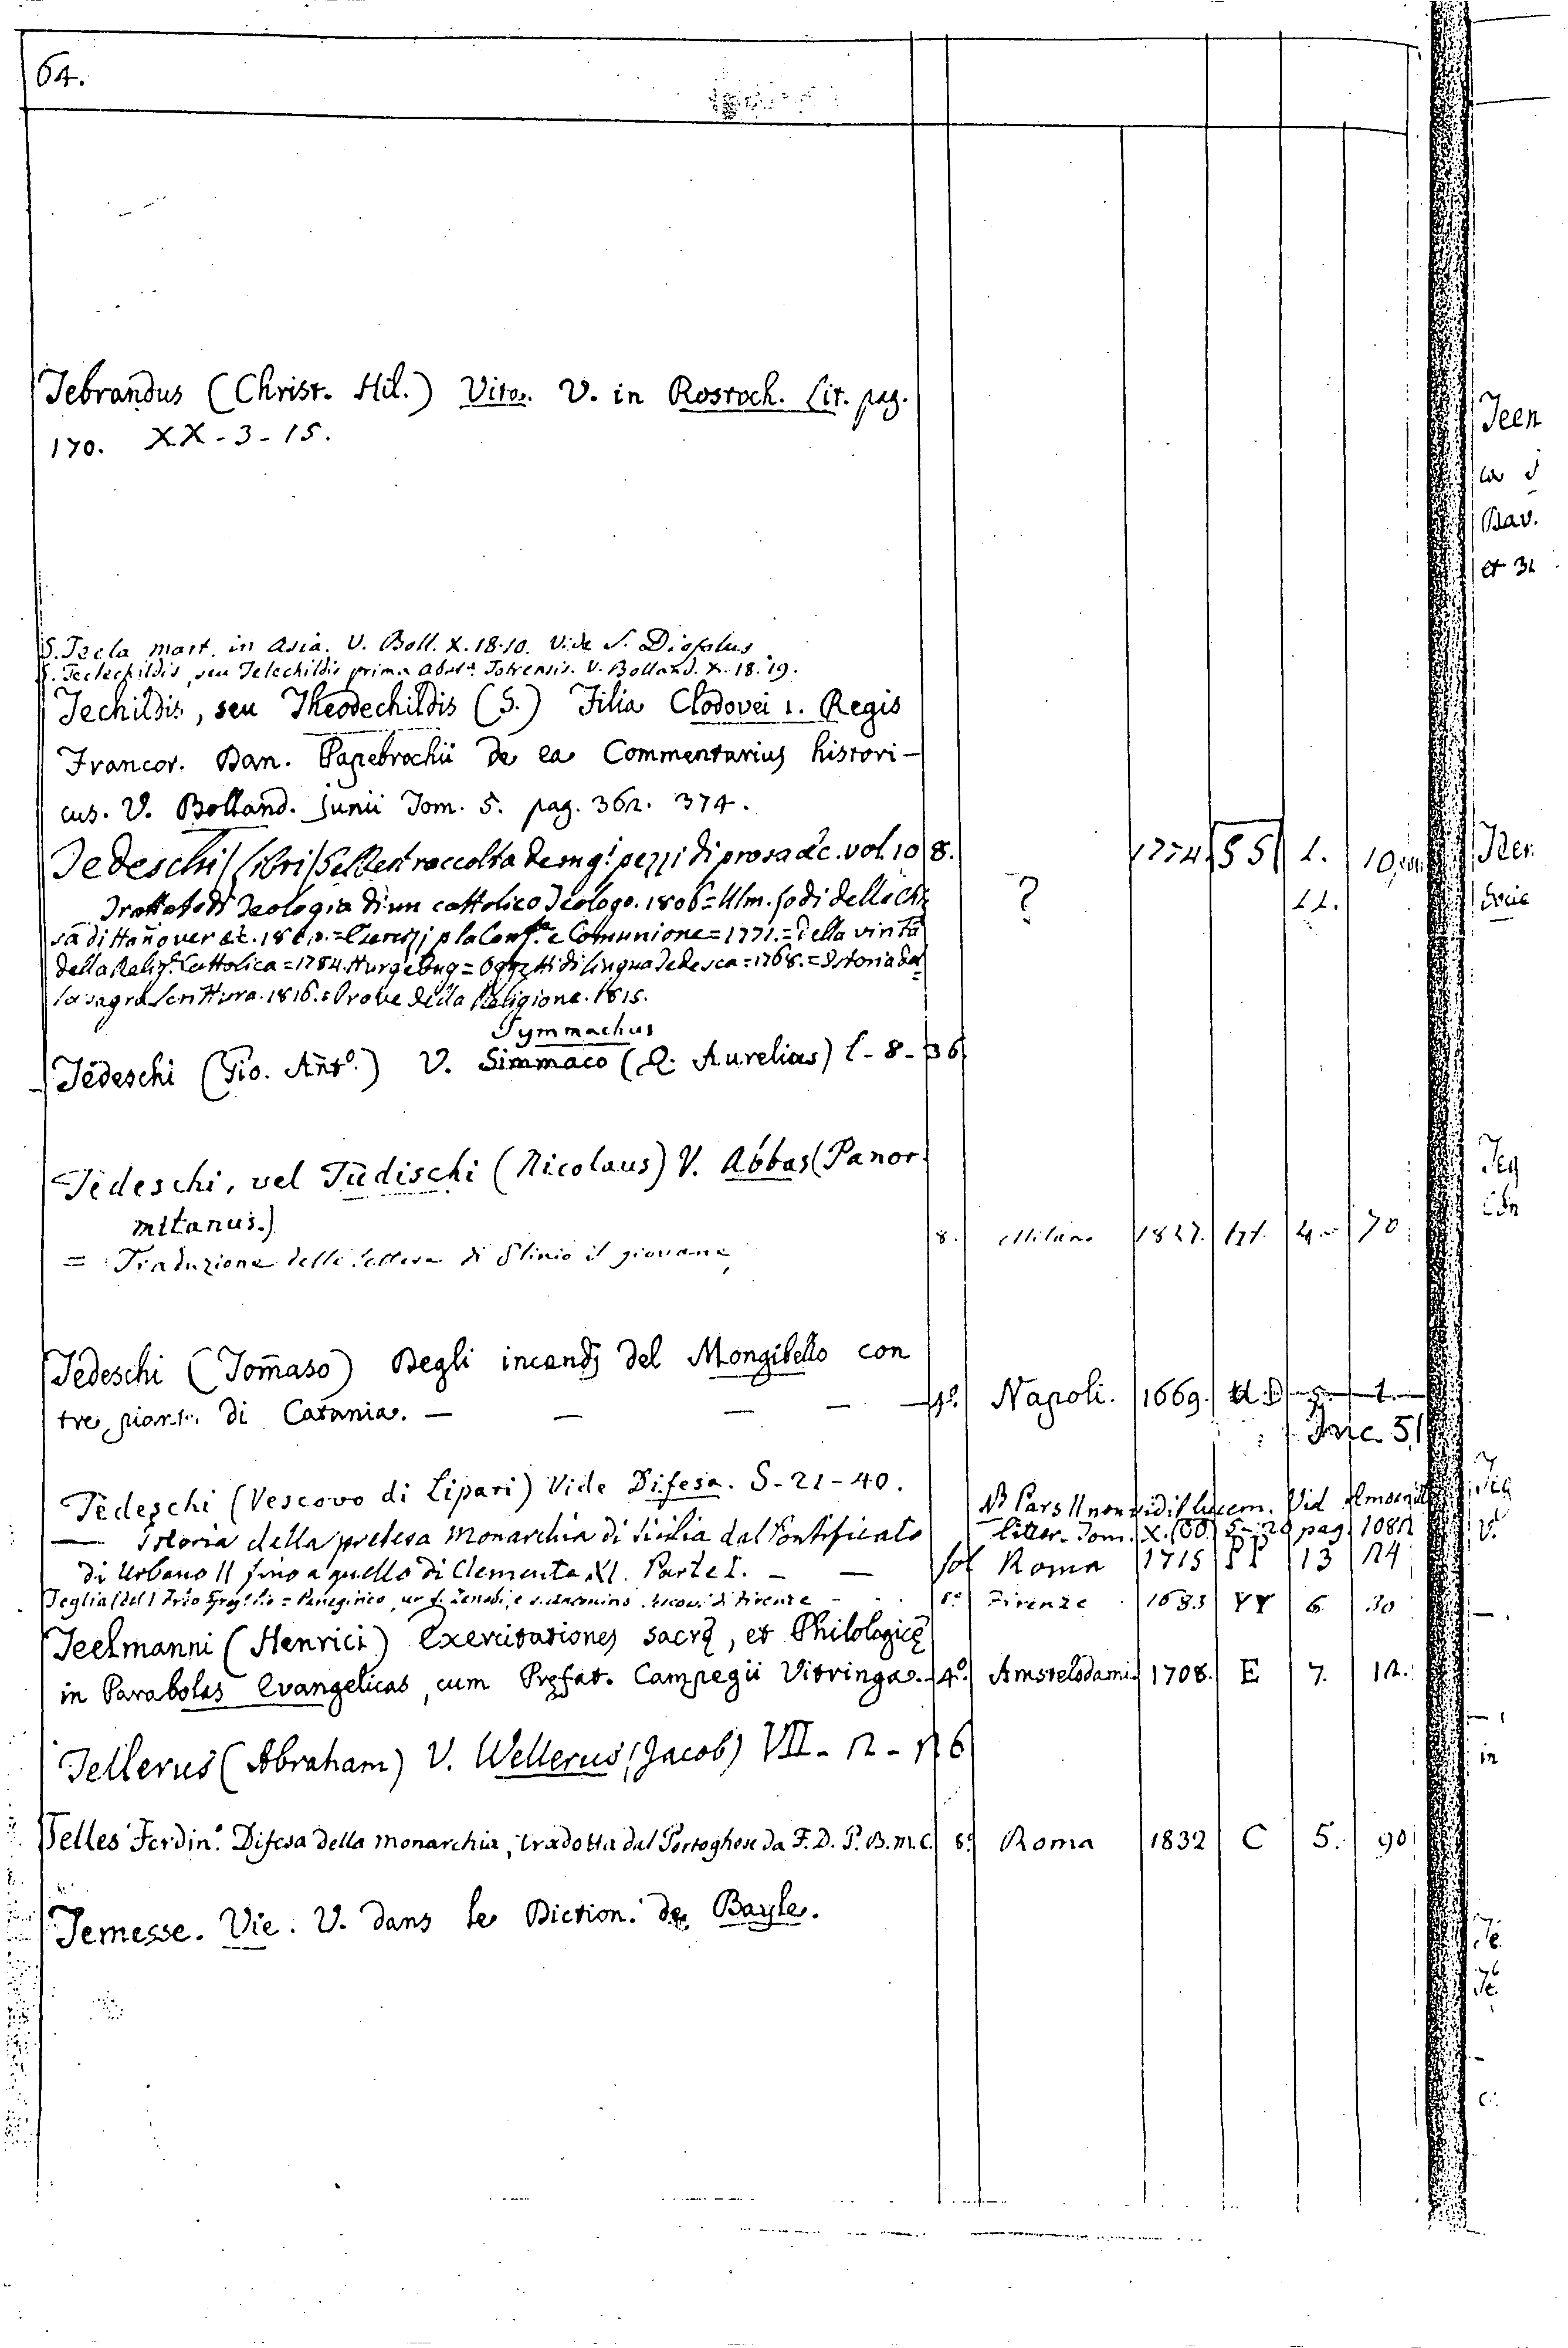 64.
Tebrandus (Christ. Hil.) Vita. V. in Rostoch. Lit. pag.
170. XX-3-15.
S. Tecla mart. in Asia. V. Boll. X. 18.10. Vide S.
S. Teclechildis, seu Telechildis prima V. Bolland. X. 18. 19.
Techildis, seu Theodechildis (S.) Filia Clodovei 1. Regis
Francor. Dan. Papebrochii de ea Commentarius histori-
cus. V. Bolland. Junii Tom. 5. pag. 362. 374.
Tedeschi libri raccolta de mgi. pezzi di prosa &c. vol. 10 8. ? 1774 55 1. 10
Trattato di Teologia di un cattolico Teologo. 1806 = Ulm. 11.
sa di Hañover &c. = p la Conf.e e Comunione = 1771. = Della virità
della Relig.e Cattolica = 1784 = Oggetti di lingua Tedesca = 1768. = Istoria del
la sagra Scrittura. 1816. = Prove della Religione. 1815.
Symmachus
Tedeschi (Gio. Anto.) V. Simmaco (Q. Aurelias) l-8-36
Tedeschi, vel Tudischi (Nicolaus) V. Abbas (Panor
mitanus.)
= Traduzione delle lettere di Plinio il giovane 8. Milano 1827. 4. 70
Tedeschi (Tom̄aso) Degli incendj del Mongibello con
tre piante di Catania. — — — — 4o. Napoli. 1669. 1.
Inc. 51
Tedeschi (Vescovo di Lipari) Vide Difesa. S-21-40.
NB Pars II non vidit lucem. Vid
— Istoria della pretesa Monarchia di Sicilia dal Pontificato litter. Tom. X. pag. 1082
di Urbano II fino a quello di Clemente XI. Parte I. — — fol Roma 1715 13 24
Teglia (del) = Panegirico, di Firenze Firenze 1683 YY 6. 30
Teelmanni (Henrici) Exercitationes sacrę, et Philologicę
in Parabolas Evangelicas, cum Pręfat. Campegii Vitringa. 4o. Amstelodami. 1708. E 7. 12.
Tellerus (Abraham) V. Wellerus (Jacob) VII-12-26
Telles Ferdin.o Difesa della Monarchia, tradotta dal Portoghese da F. D. P. B. M. C. 8o. Roma 1832 C 5. 90
Temesse. Vie. V. dans le Diction. de Bayle.